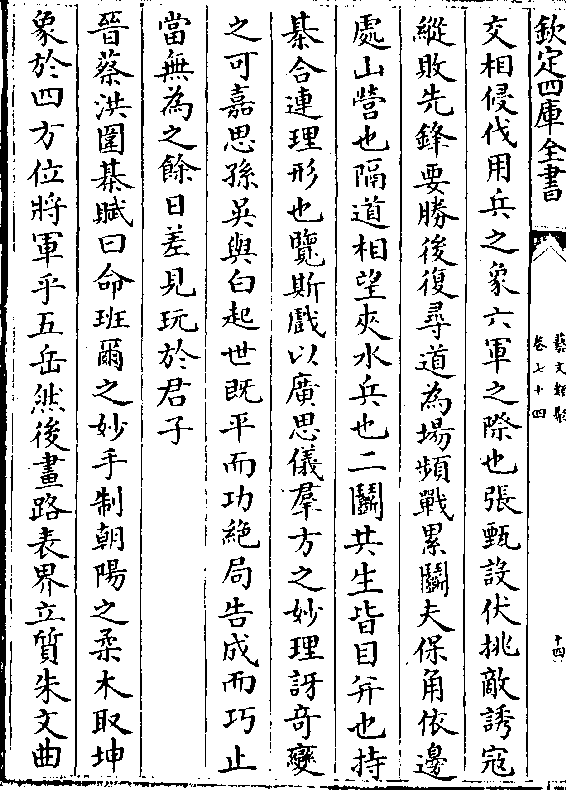 欽定四庫全書
藝文類聚
卷七十四
十四
交相侵伐用兵之象六軍之際也張甄設伏挑敵誘宼
縱敗先鋒要勝後復尋道為場頻戰累鬬夫保角依邊
處山營也隔道相望夾水兵也二鬬共生皆目并也持
棊合連理形也覽斯戲以廣思儀羣方之妙理訝奇變
之可嘉思孫吳與白起世既平而功絶局告成而巧止
當無為之餘日差見玩於君子
晉蔡洪圍棊賦曰命班爾之妙手制朝陽之柔木取坤
象於四方位將軍乎五岳然後畫路表界立質朱文曲